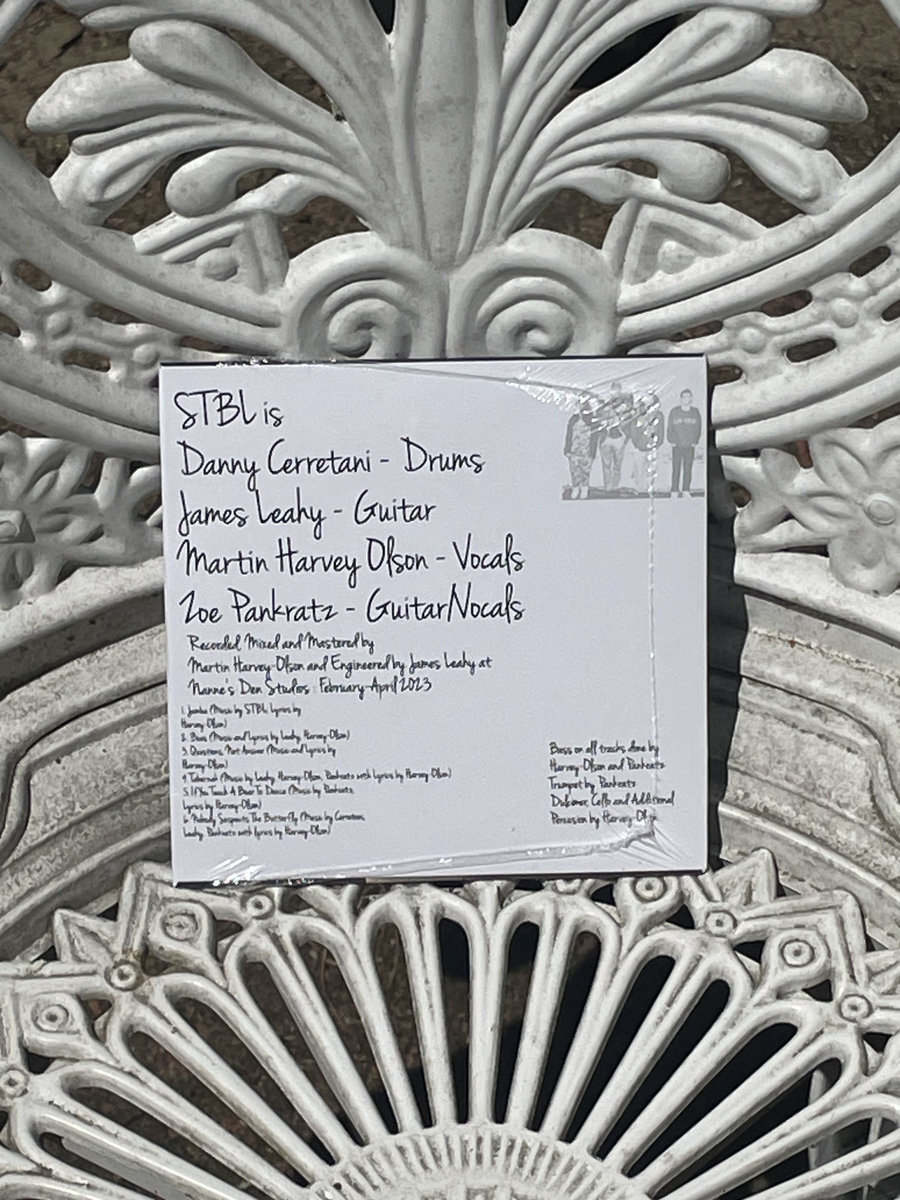 STBL is
Danny Cerretani - Drums
James Leahy - Guitar
Martin Harvey Olson - Vocals
Zoe Pankratz - Guitar/Vocals
Recorded, Mixed and Mastered by
Martin Harvey-Olson and Engineered by James Leahy at
Nanne's Den Studios February-April 2023
(Music by STBL, Lyrics by
Harvey-Olson)
2. (Music and Lyrics by Leahy, Harvey-Olson)
3. Questions, Not Answer (Music and Lyrics by
Harvey-Olson)
4. (Music by Leahy, Harvey-Olson, Pankratz with Lyrics by Harvey-Olson)
5. If You Teach A Bear To Dance (Music by Pankratz,
Lyrics by Harvey-Olson)
6. Nobody Suspects The Butterfly (Music by Cerretani,
Leahy, Pankratz with Lyrics by Harvey-Olson)
Bass on all tracks done by
Harvey-Olson and Pankratz
Trumpet by Pankratz
Dulcimer, Cello and Additional
Percusion by Harvey-Olson